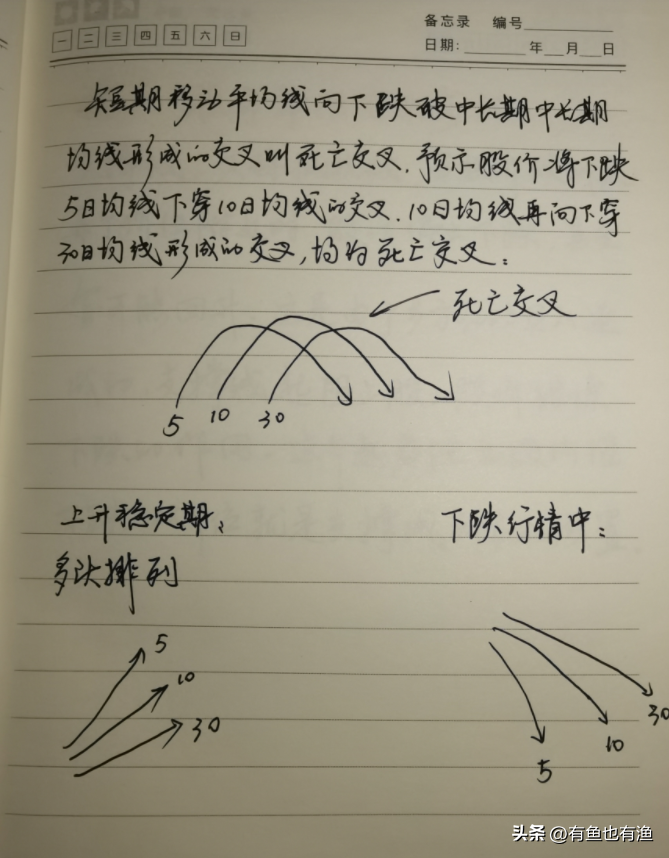 备忘录 编号
一 二 三 四 五 六 日
日期: 年 月 日
短期移动平均线向下跌破中长期中长期
均线形成的交叉叫死亡交叉.预示股价将下跌
5日均线下穿10日均线的交叉.10日均线再向下穿
30日均线形成的交叉,均为死亡交叉:
死亡交叉
5 10 30
上升稳定期: 下跌行情中:
多头排列
5
10
30
30
10
5
头条 @有鱼也有渔